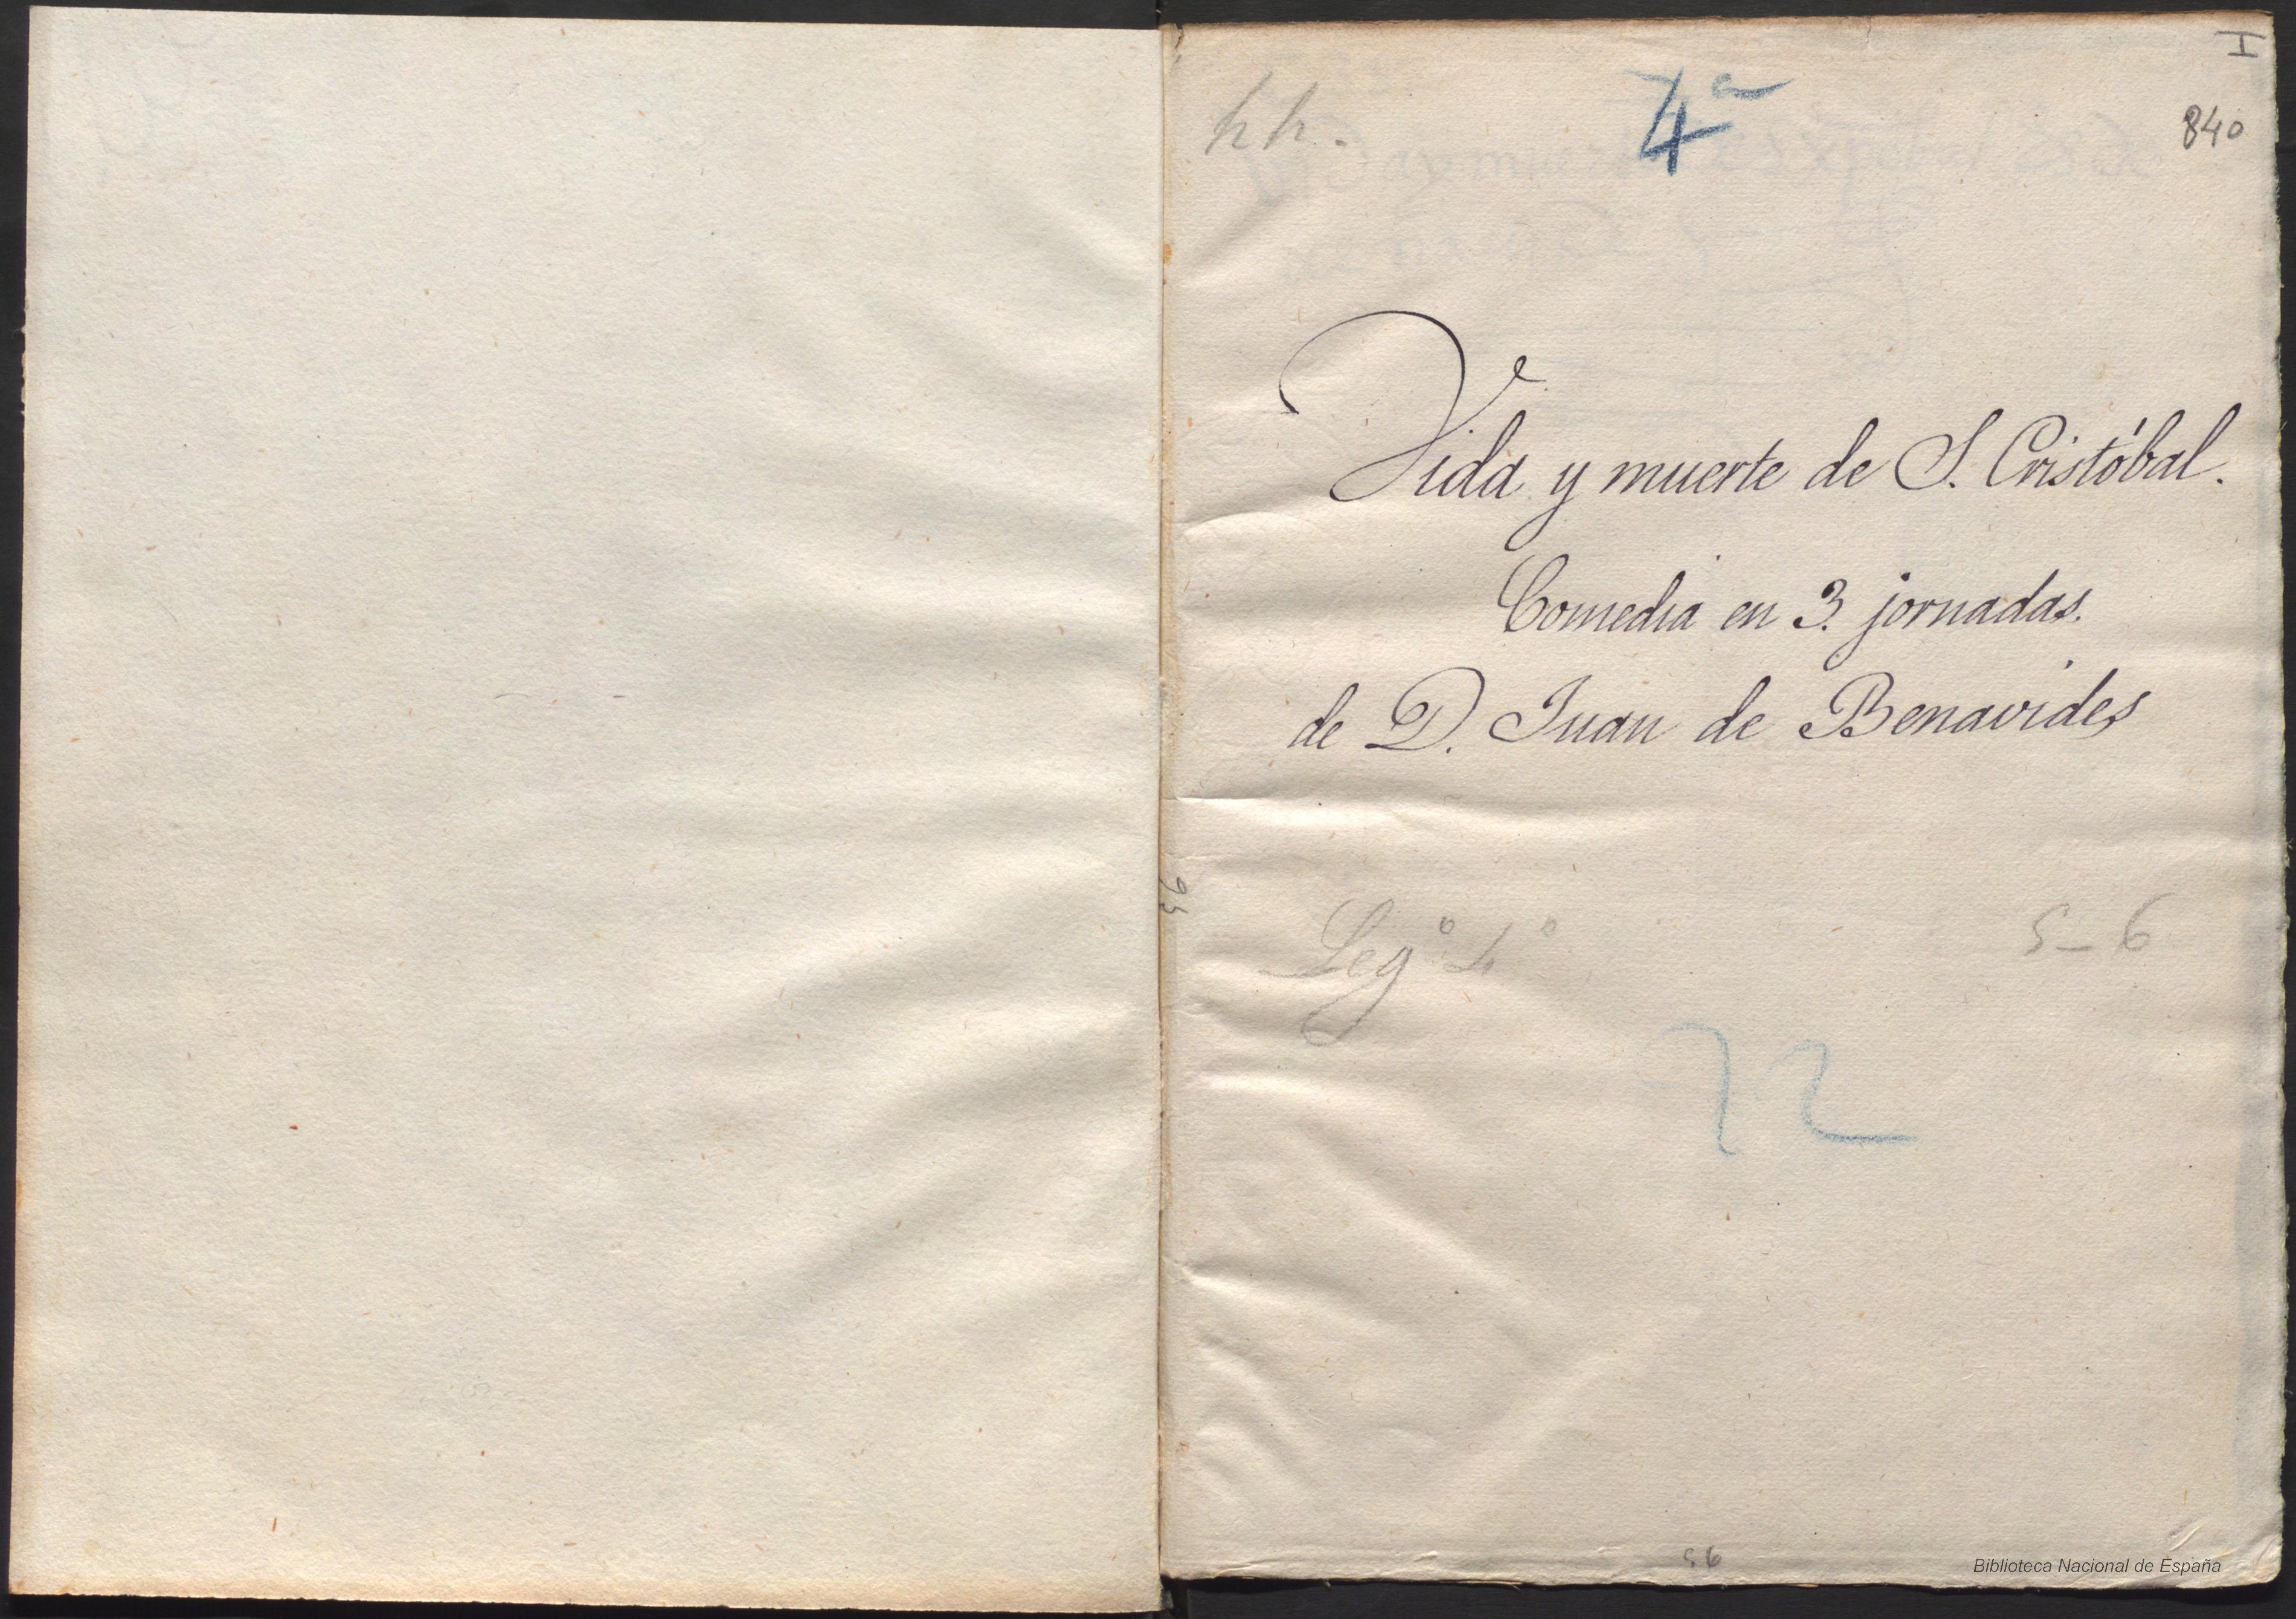 I
hh.
4ª
840
Vida y muerte de S. Cristóbal.
Comedia en 3. jornadas.
de D. Juan de Benavides
Legº 4º
5-6
72
56
Biblioteca Nacional de España